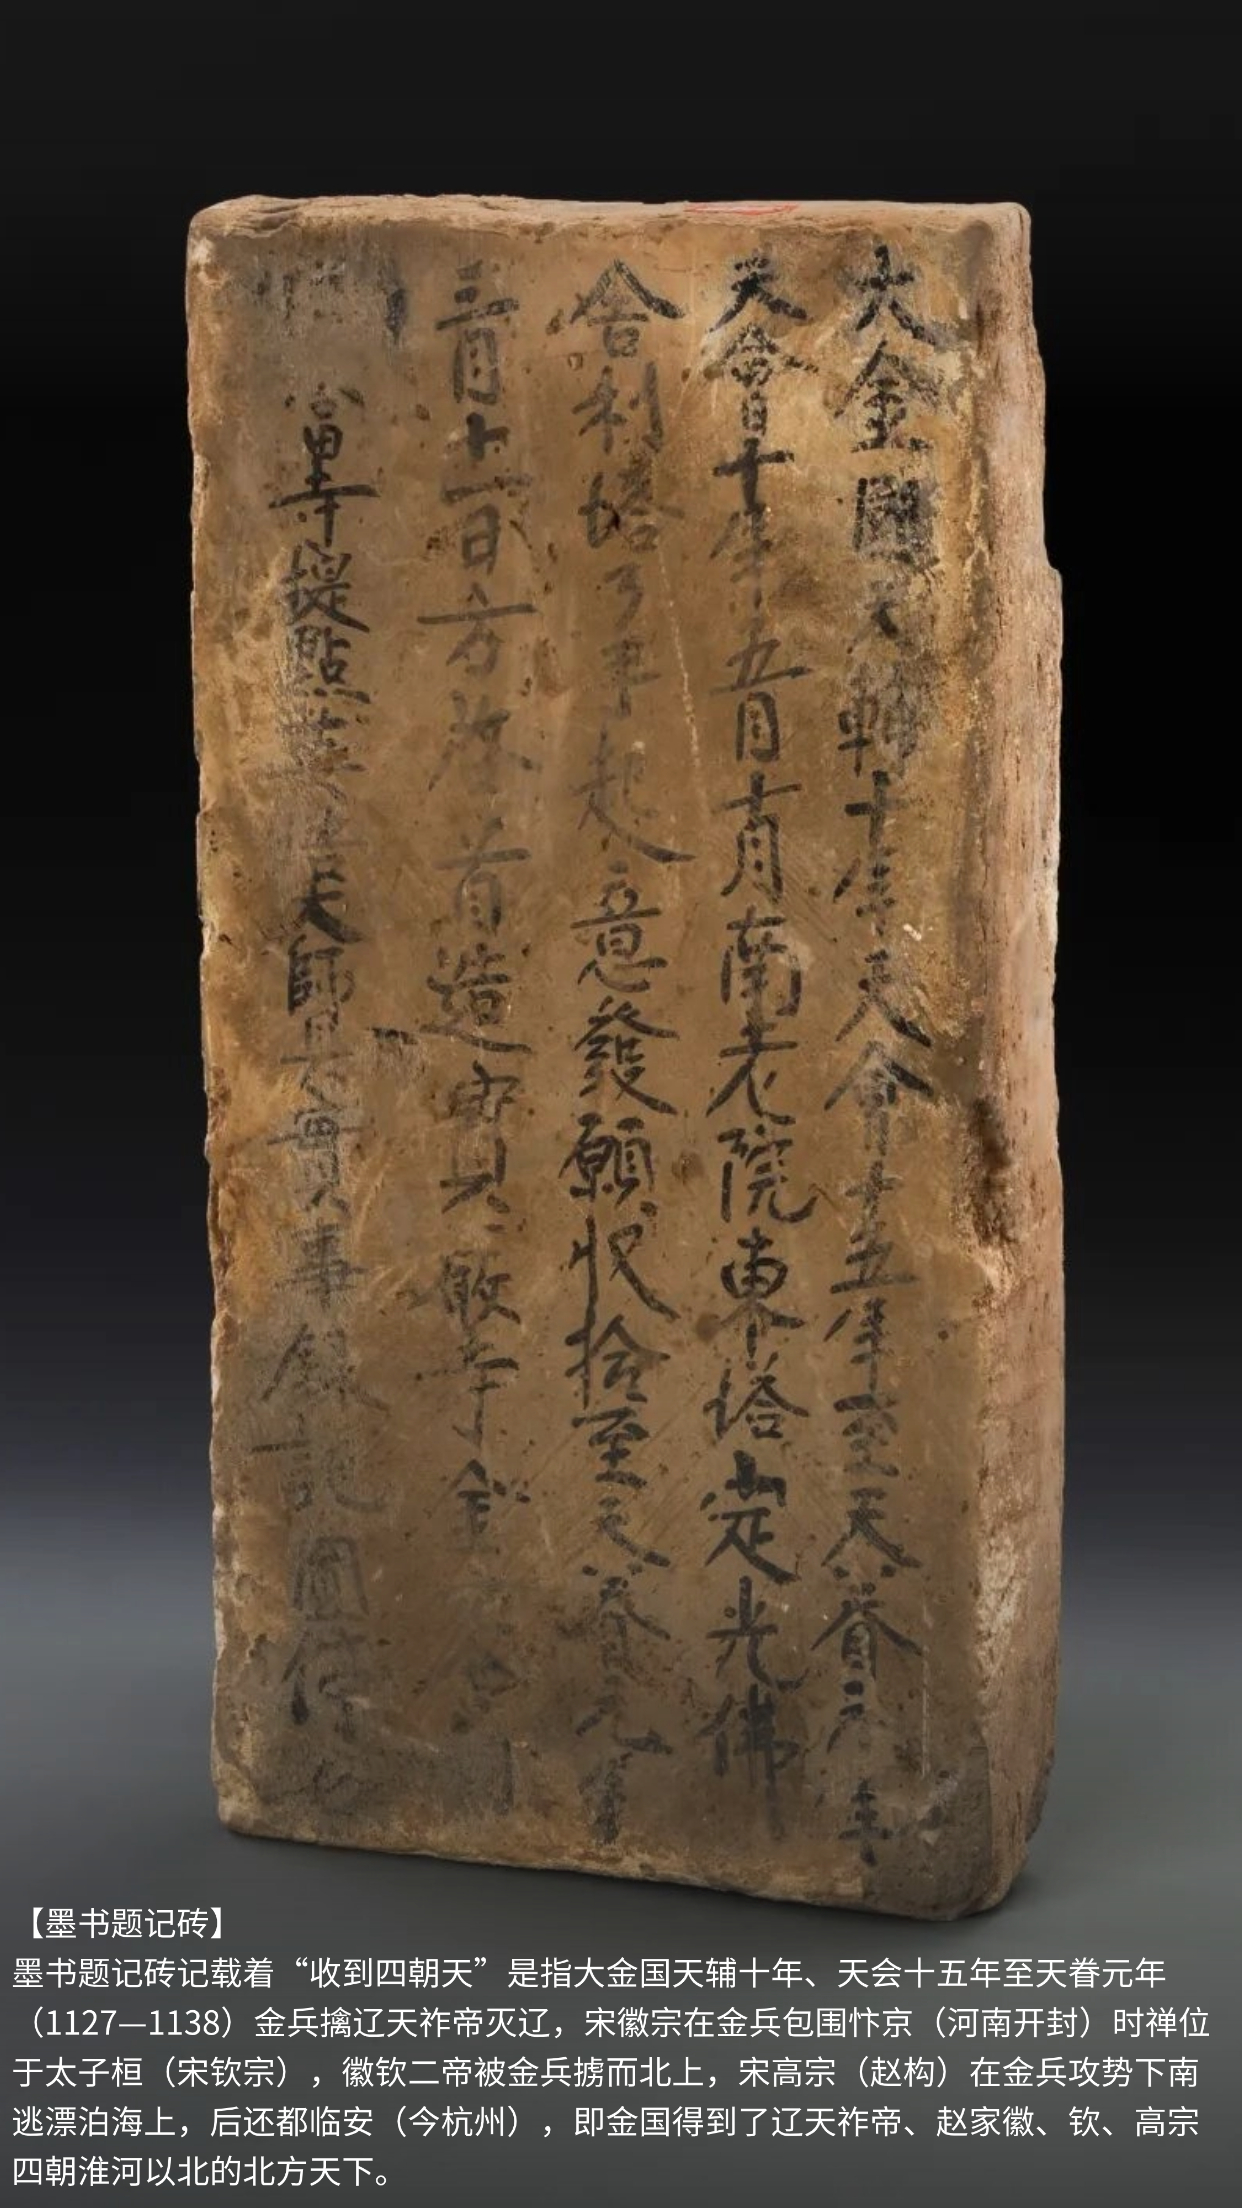 大金國天輔十年天會十五年至天眷元年
天會十年五月十月南老院東塔定光佛
舍利塔了手起意發願收捨至天眷元年
三月上一日方啓首造寶具嚴寺金
寺提點 天師 事錄記圖
【墨书题记砖】
墨书题记砖记载着“收到四朝天”是指大金国天辅十年、天会十五年至天眷元年
（1127—1138）金兵擒辽天祚帝灭辽，宋徽宗在金兵包围忭京（河南开封）时禅位
于太子桓（宋钦宗），徽钦二帝被金兵掳而北上，宋高宗（赵构）在金兵攻势下南
逃漂泊海上，后还都临安（今杭州），即金国得到了辽天祚帝、赵家徽、钦、高宗
四朝淮河以北的北方天下。